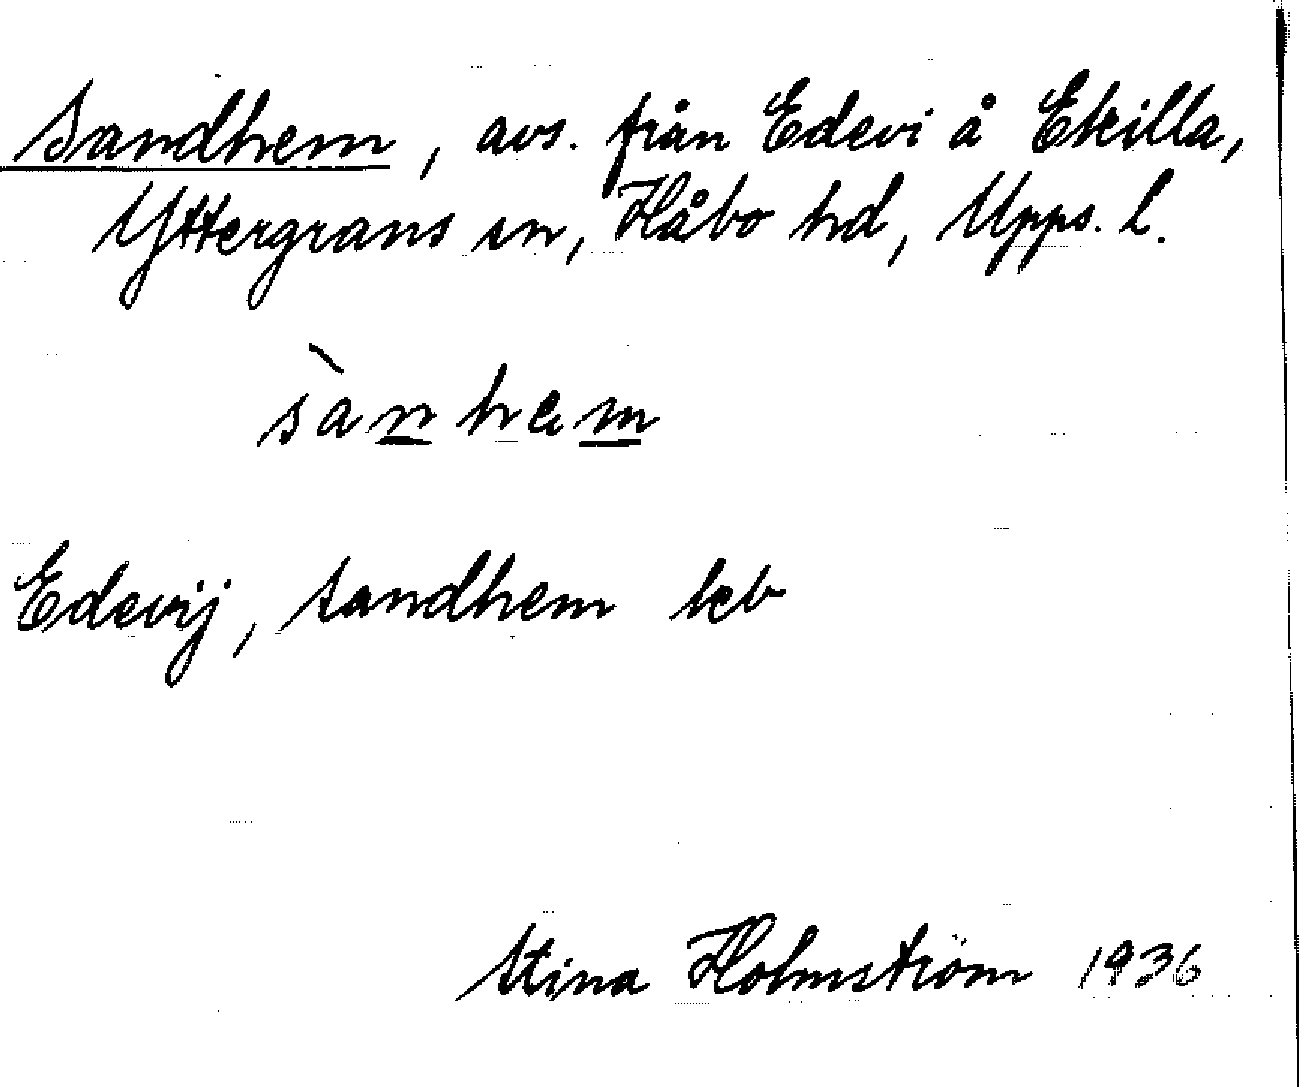 Sandhem, avs. från Edevi å Ekilla,
Yttergrans sn, Håbo hd, Upps. l.
sàn hem
Edevij, Sandhem keb
Stina Holmström 1936